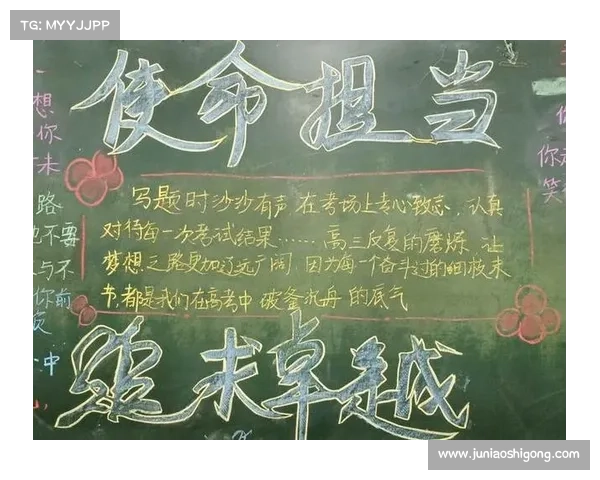 TG: MYYJJPP
使命担当
想
你
未
路
也不要
与不
你前
中
写题时沙沙有声 在考场上专心致志，认真
对待每一次考试结果……高三反复的磨炼 让
梦想之路更加辽远广阔，因为每一个奋斗过的细枝末
节，都是我们在高考中 破釜沉舟 的底气
你
笑
追求卓越
www.juniaoshigong.com